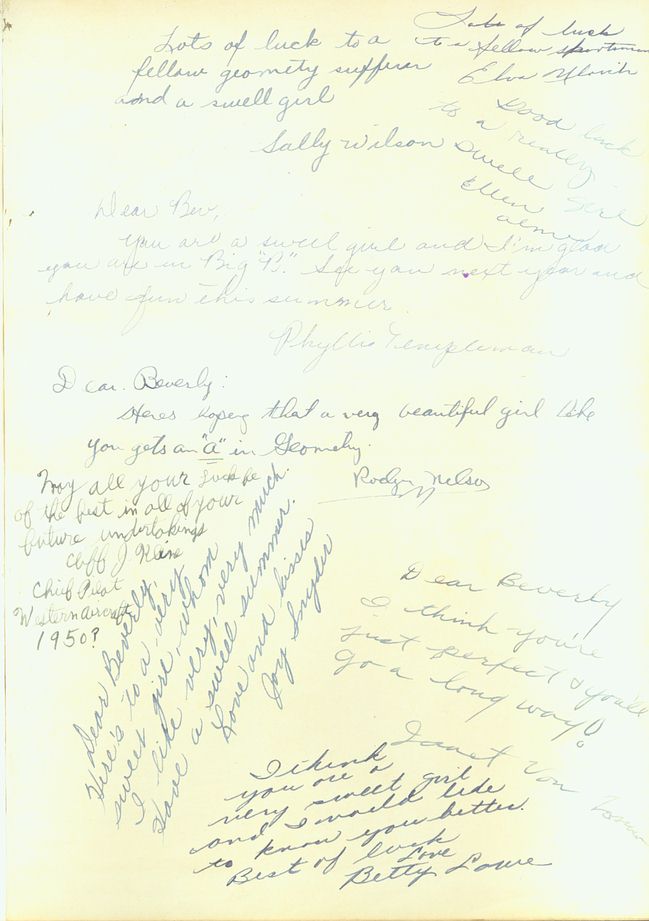 Lots of luck to a
fellow geomety suffurer
and a swell girl
Sally Wilson
Lots of luck
to a fellow sportsman
Elva
Good luck
to a really
swell girl
Ellen
Dear Bev,
You are a sweet girl and I'm glad
you are in Big "B." See you next year and
have fun this summer.
Phyllis Templeman
Dear Beverly:
Heres hopeing that a very beautiful girl like
you gets an "a" in Geometry.
Rodger Nelson
May all your luck be
of the best in all of your
future undertakings
Cliff J.
Chief Pilot
Western Aircraft
1950?
Dear Beverly,
Here's to a very
sweet girl, whom
I like very, very much.
Have a swell summer.
Love and kisses
Joy Snyder
Dear Beverly
I think you're
just perfect & you'll
go a long way!
Janet Von
I think
you are a
very sweet girl
and I would like
to know you better.
Best of luck
Love
Betty Lowe